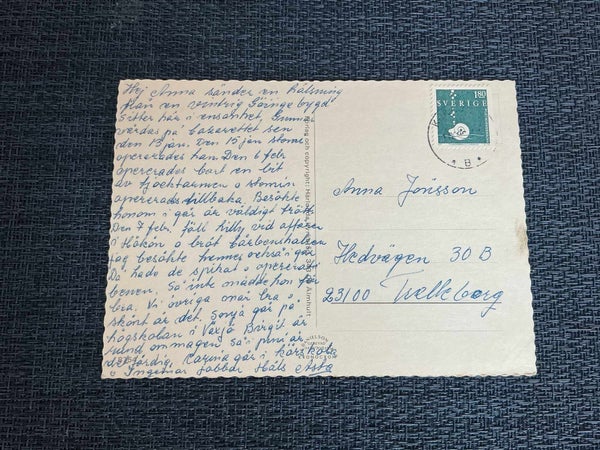 Hej Anna sänder en hälsning
från en vintrig Göinge bygd
Sitter här i ensamhet, Gunnar
vårdas på lasarettet sen
den 13 jan. Den 15 jan stomi
opererades han. Den 6 febr
opererades bort en bit
av tjocktarmen o stomin
opererades tillbaka. Besökte
honom i går är väldigt trött.
Den 7 febr. föll Killy vid affären
i Håkon o bröt lårbenshalsen
Jag besökte henne också i går
Då hade de spikat o opererat
benen. Så inte mådde hon för
bra. Vi övriga mår bra o
skönt är det. Sonja går på
högskolan i Växjö Birgit är
rund om magen så
Carina går i körskola
o Ingemar jobbar Häls Asta
180
SVERIGE
B
Anna Jönsson
Hedvägen 30 B
23100 Trelleborg
och copyright:
Älmhult